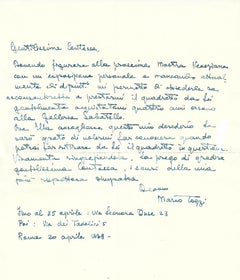 Gentilissima Contessa,
Dovendo figurare alla prossima Mostra Veneziana
con un esposizione personale e mancando attual
mente di dipinti mi permetto di chiederle se
acconsentirebbe a prestarmi il quadretto da Lei
gentilmente acquistato quattro anni orsono
alla Galleria Sabatello.
Se Ella accogliesse questo mio desiderio Le
sarò grato di volermi far conoscere quando
potrei far ritirare da Lei il quadretto in questione.
Vivamente ringraziandola, La prego di gradire
gentilissima Contessa, i sensi della mia
più rispettosa simpatia
Mario Tozzi
Fino al 25 aprile: via Eleonora Duse 23
Poi: Via dei
Roma 20 aprile